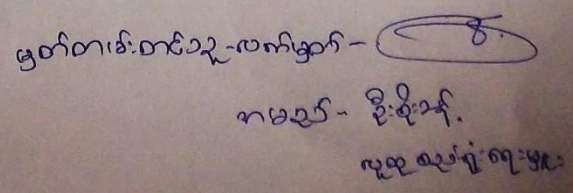 မှတ်တမ်းတင်သူ-လက်မှတ်-
အမည်- ဦးစိုးသန့်
လူထုစည်းရုံးရေးမှူး